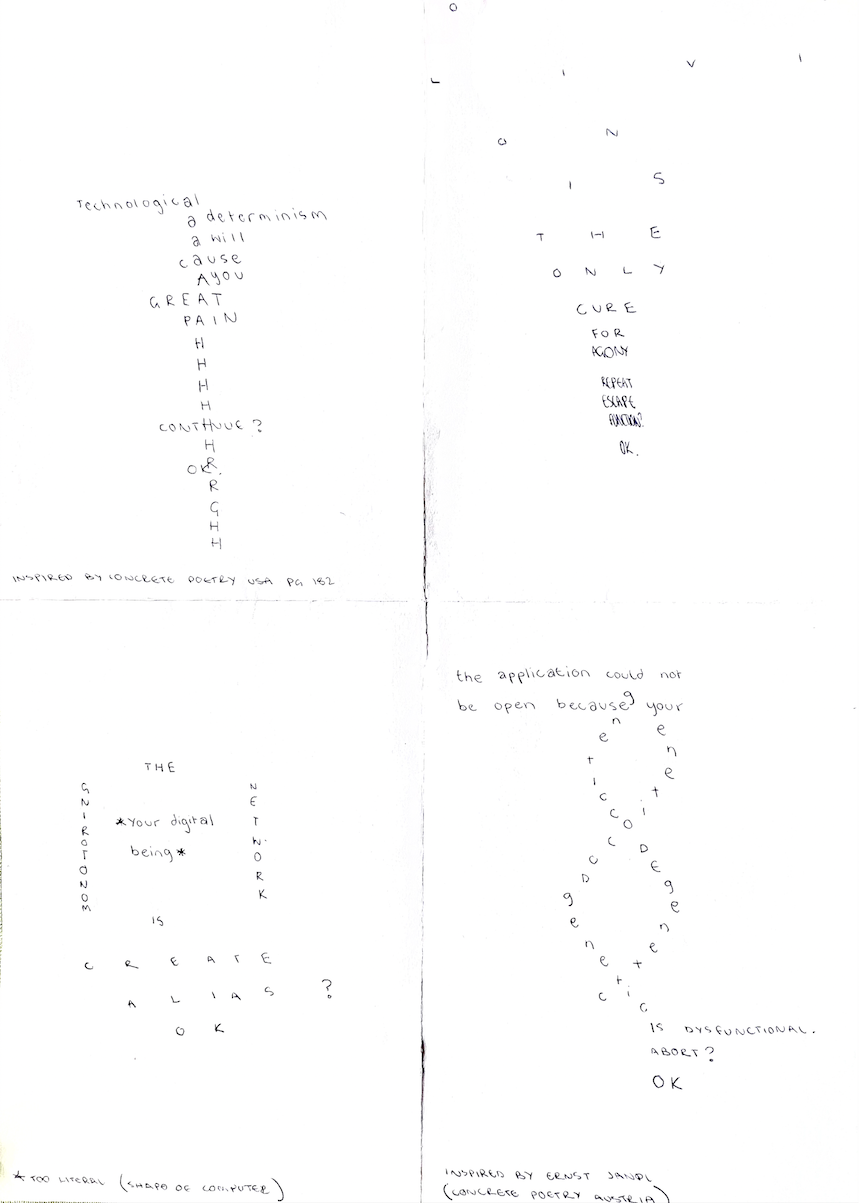 Technological
a determinism
a will
cause
AYOU
GREAT
PAIN
H
H
H
H
CONTINUE?
H
OK.
R
R
G
H
H
INSPIRED BY CONCRETE POETRY USA PG 182
O
L I V I
O N
I S
T H E
O N L Y
CURE
FOR
AGONY
REPEAT
ESCAPE
FUNCTION?
OK.
THE
GNIROTONOM
*Your digital
being*
NETWORK
IS
C R E A T E
A L I A S ?
O K
* TOO LITERAL (SHAPE OF COMPUTER)
the application could not
be open because your
genetic CODE genetic
genetic CODE genetic
IS DYSFUNCTIONAL.
ABORT?
OK
INSPIRED BY ERNST JANDL
(CONCRETE POETRY AUSTRIA)